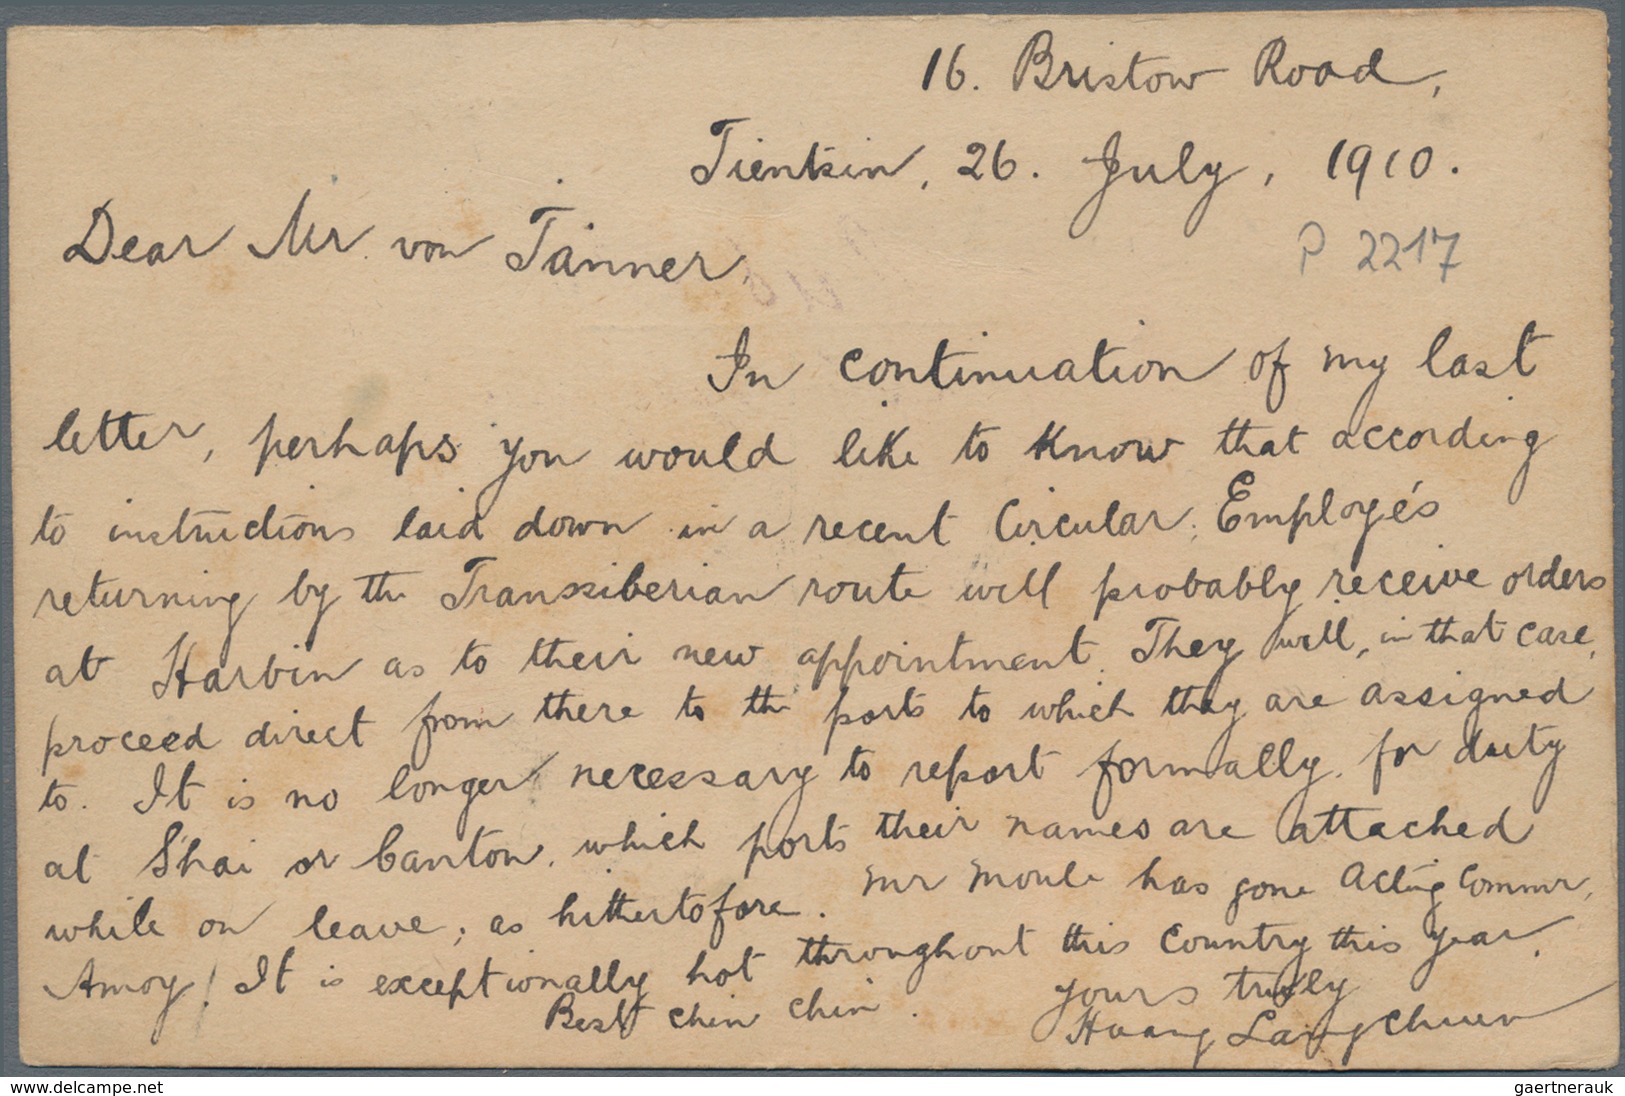 16. Bristow Road,
Tientsin, 26. July, 1910.
Dear Mr. von Tanner,
P 2217
In continuation of my last
letter, perhaps you would like to know that according
to instructions laid down in a recent Circular, Employés
returning by the Transsiberian route will probably receive orders
at Harbin as to their new appointment. They will, in that case,
proceed direct from there to the ports to which they are assigned
to. It is no longer necessary to report formally for duty
at S'hai or Canton, which ports their names are attached
while on leave, as hithertofore. Mr Moule has gone Acting Commr,
Amoy! It is exceptionally hot throughout this country this year.
Best chin chin. Yours truly
Huang Lang Chuen
delcampe.net
gaertnerauk